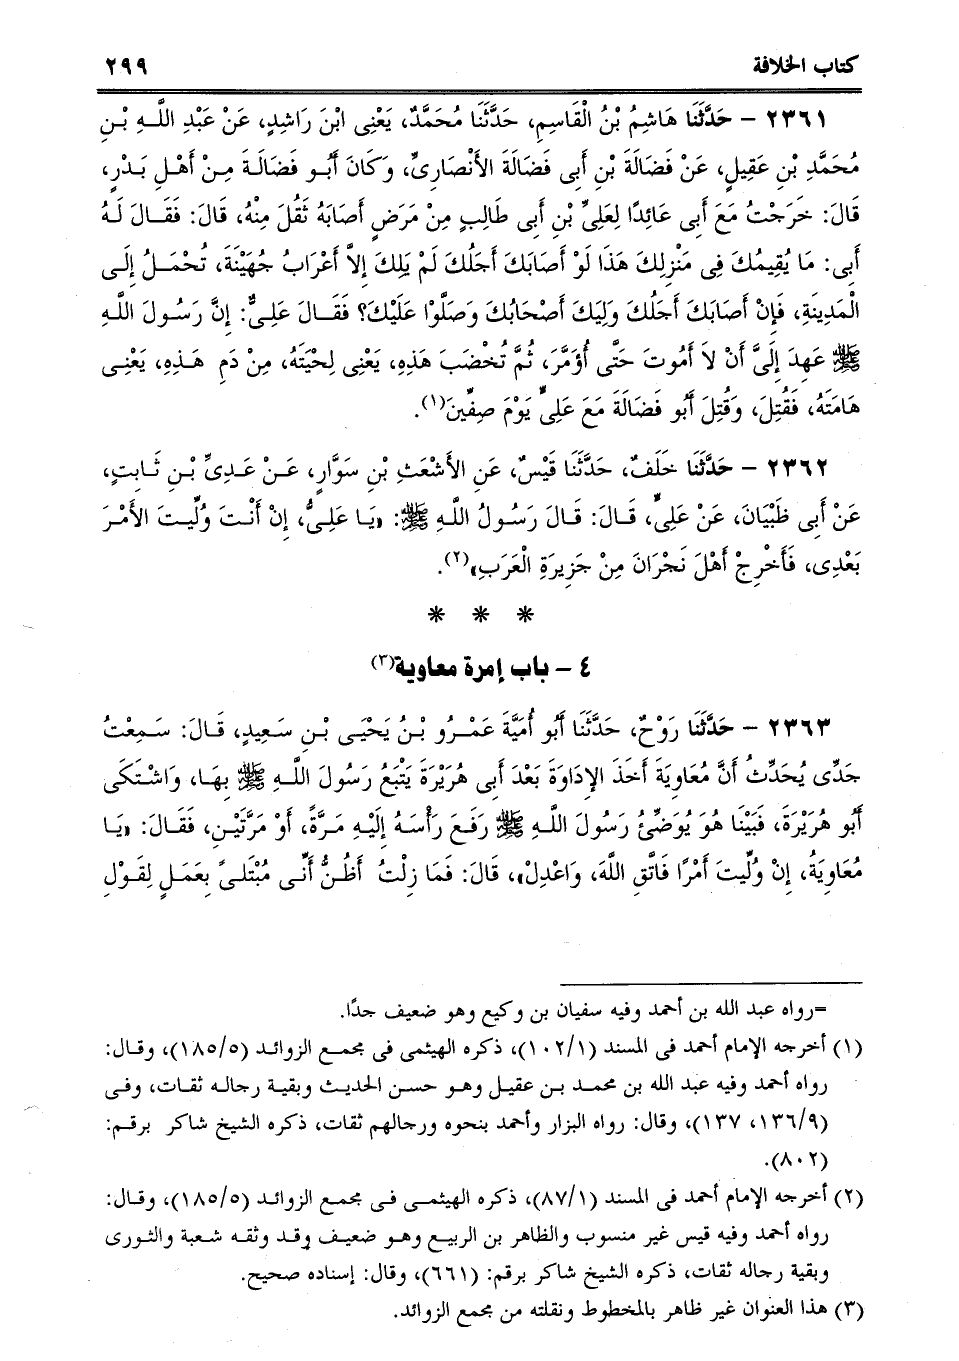 كتاب الخلافة ٢٩٩
٢٣٦١ - حَدَّثَنَا هَاشِمُ بْنُ الْقَاسِمِ، حَدَّثَنَا مُحَمَّدٌ، يَعْنِى ابْنَ رَاشِدٍ، عَنْ عَبْدِ اللَّهِ بْنِ
مُحَمَّدِ بْنِ عَقِيلٍ، عَنْ فَضَالَةَ بْنِ أَبِى فَضَالَةَ الأَنْصَارِىِّ، وَكَانَ أَبُو فَضَالَةَ مِنْ أَهْلِ بَدْرٍ،
قَالَ: خَرَجْتُ مَعَ أَبِى عَائِدًا لِعَلِىِّ بْنِ أَبِى طَالِبٍ مِنْ مَرَضٍ أَصَابَهُ ثَقُلَ مِنْهُ، قَالَ: فَقَالَ لَهُ
أَبِى: مَا يُقِيمُكَ فِى مَنْزِلِكَ هَذَا لَوْ أَصَابَكَ أَجَلُكَ لَمْ يَلِكَ إِلاَّ أَعْرَابُ جُهَيْنَةَ، تُحْمَلُ إِلَى
الْمَدِينَةِ، فَإِنْ أَصَابَكَ أَجَلُكَ وَلِيَكَ أَصْحَابُكَ وَصَلَّوْا عَلَيْكَ؟ فَقَالَ عَلِىٌّ: إِنَّ رَسُولَ اللَّهِ
ﷺ عَهِدَ إِلَىَّ أَنْ لاَ أَمُوتَ حَتَّى أُؤَمَّرَ، ثُمَّ تُخْضَبَ هَذِهِ، يَعْنِى لِحْيَتَهُ، مِنْ دَمِ هَذِهِ، يَعْنِى
هَامَتَهُ، فَقُتِلَ، وَقُتِلَ أَبُو فَضَالَةَ مَعَ عَلِىٍّ يَوْمَ صِفِّينَ(١).
٢٣٦٢ - حَدَّثَنَا خَلَفٌ، حَدَّثَنَا قَيْسٌ، عَنِ الأَشْعَثِ بْنِ سَوَّارٍ، عَنْ عَدِىِّ بْنِ ثَابِتٍ،
عَنْ أَبِى ظَبْيَانَ، عَنْ عَلِىٍّ، قَالَ: قَالَ رَسُولُ اللَّهِ ﷺ: «يَا عَلِىُّ، إِنْ أَنْتَ وُلِّيتَ الأَمْرَ
بَعْدِى، فَأَخْرِجْ أَهْلَ نَجْرَانَ مِنْ جَزِيرَةِ الْعَرَبِ»(٢).
* * *
٤ - باب إمرة معاوية(٣)
٢٣٦٣ - حَدَّثَنَا رَوْحٌ، حَدَّثَنَا أَبُو أُمَيَّةَ عَمْرُو بْنُ يَحْيَى بْنِ سَعِيدٍ، قَالَ: سَمِعْتُ
جَدِّى يُحَدِّثُ أَنَّ مُعَاوِيَةَ أَخَذَ الإِدَاوَةَ بَعْدَ أَبِى هُرَيْرَةَ يَتْبَعُ رَسُولَ اللَّهِ ﷺ بِهَا، وَاشْتَكَى
أَبُو هُرَيْرَةَ، فَبَيْنَا هُوَ يُوَضِّئُ رَسُولَ اللَّهِ ﷺ رَفَعَ رَأْسَهُ إِلَيْهِ مَرَّةً، أَوْ مَرَّتَيْنِ، فَقَالَ: «يَا
مُعَاوِيَةُ، إِنْ وُلِّيتَ أَمْرًا فَاتَّقِ اللَّهَ، وَاعْدِلْ»، قَالَ: فَمَا زِلْتُ أَظُنُّ أَنِّى مُبْتَلىً بِعَمَلٍ لِقَوْلِ
=رواه عبد الله بن أحمد وفيه سفيان بن وكيع وهو ضعيف جدًا.
(١) أخرجه الإمام أحمد فى المسند (١٠٢/١)، ذكره الهيثمى فى مجمع الزوائد (١٨٥/٥)، وقال:
رواه أحمد وفيه عبد الله بن محمد بن عقيل وهو حسن الحديث وبقية رجاله ثقات، وفى
(١٣٦/٩، ١٣٧)، وقال: رواه البزار وأحمد بنحوه ورجالهم ثقات، ذكره الشيخ شاكر برقم:
(٨٠٢).
(٢) أخرجه الإمام أحمد فى المسند (٨٧/١)، ذكره الهيثمى فى مجمع الزوائد (١٨٥/٥)، وقال:
رواه أحمد وفيه قيس غير منسوب والظاهر بن الربيع وهو ضعيف وقد وثقه شعبة والثورى
وبقية رجاله ثقات، ذكره الشيخ شاكر برقم: (٦٦١)، وقال: إسناده صحيح.
(٣) هذا العنوان غير ظاهر بالمخطوط ونقلته من مجمع الزوائد.